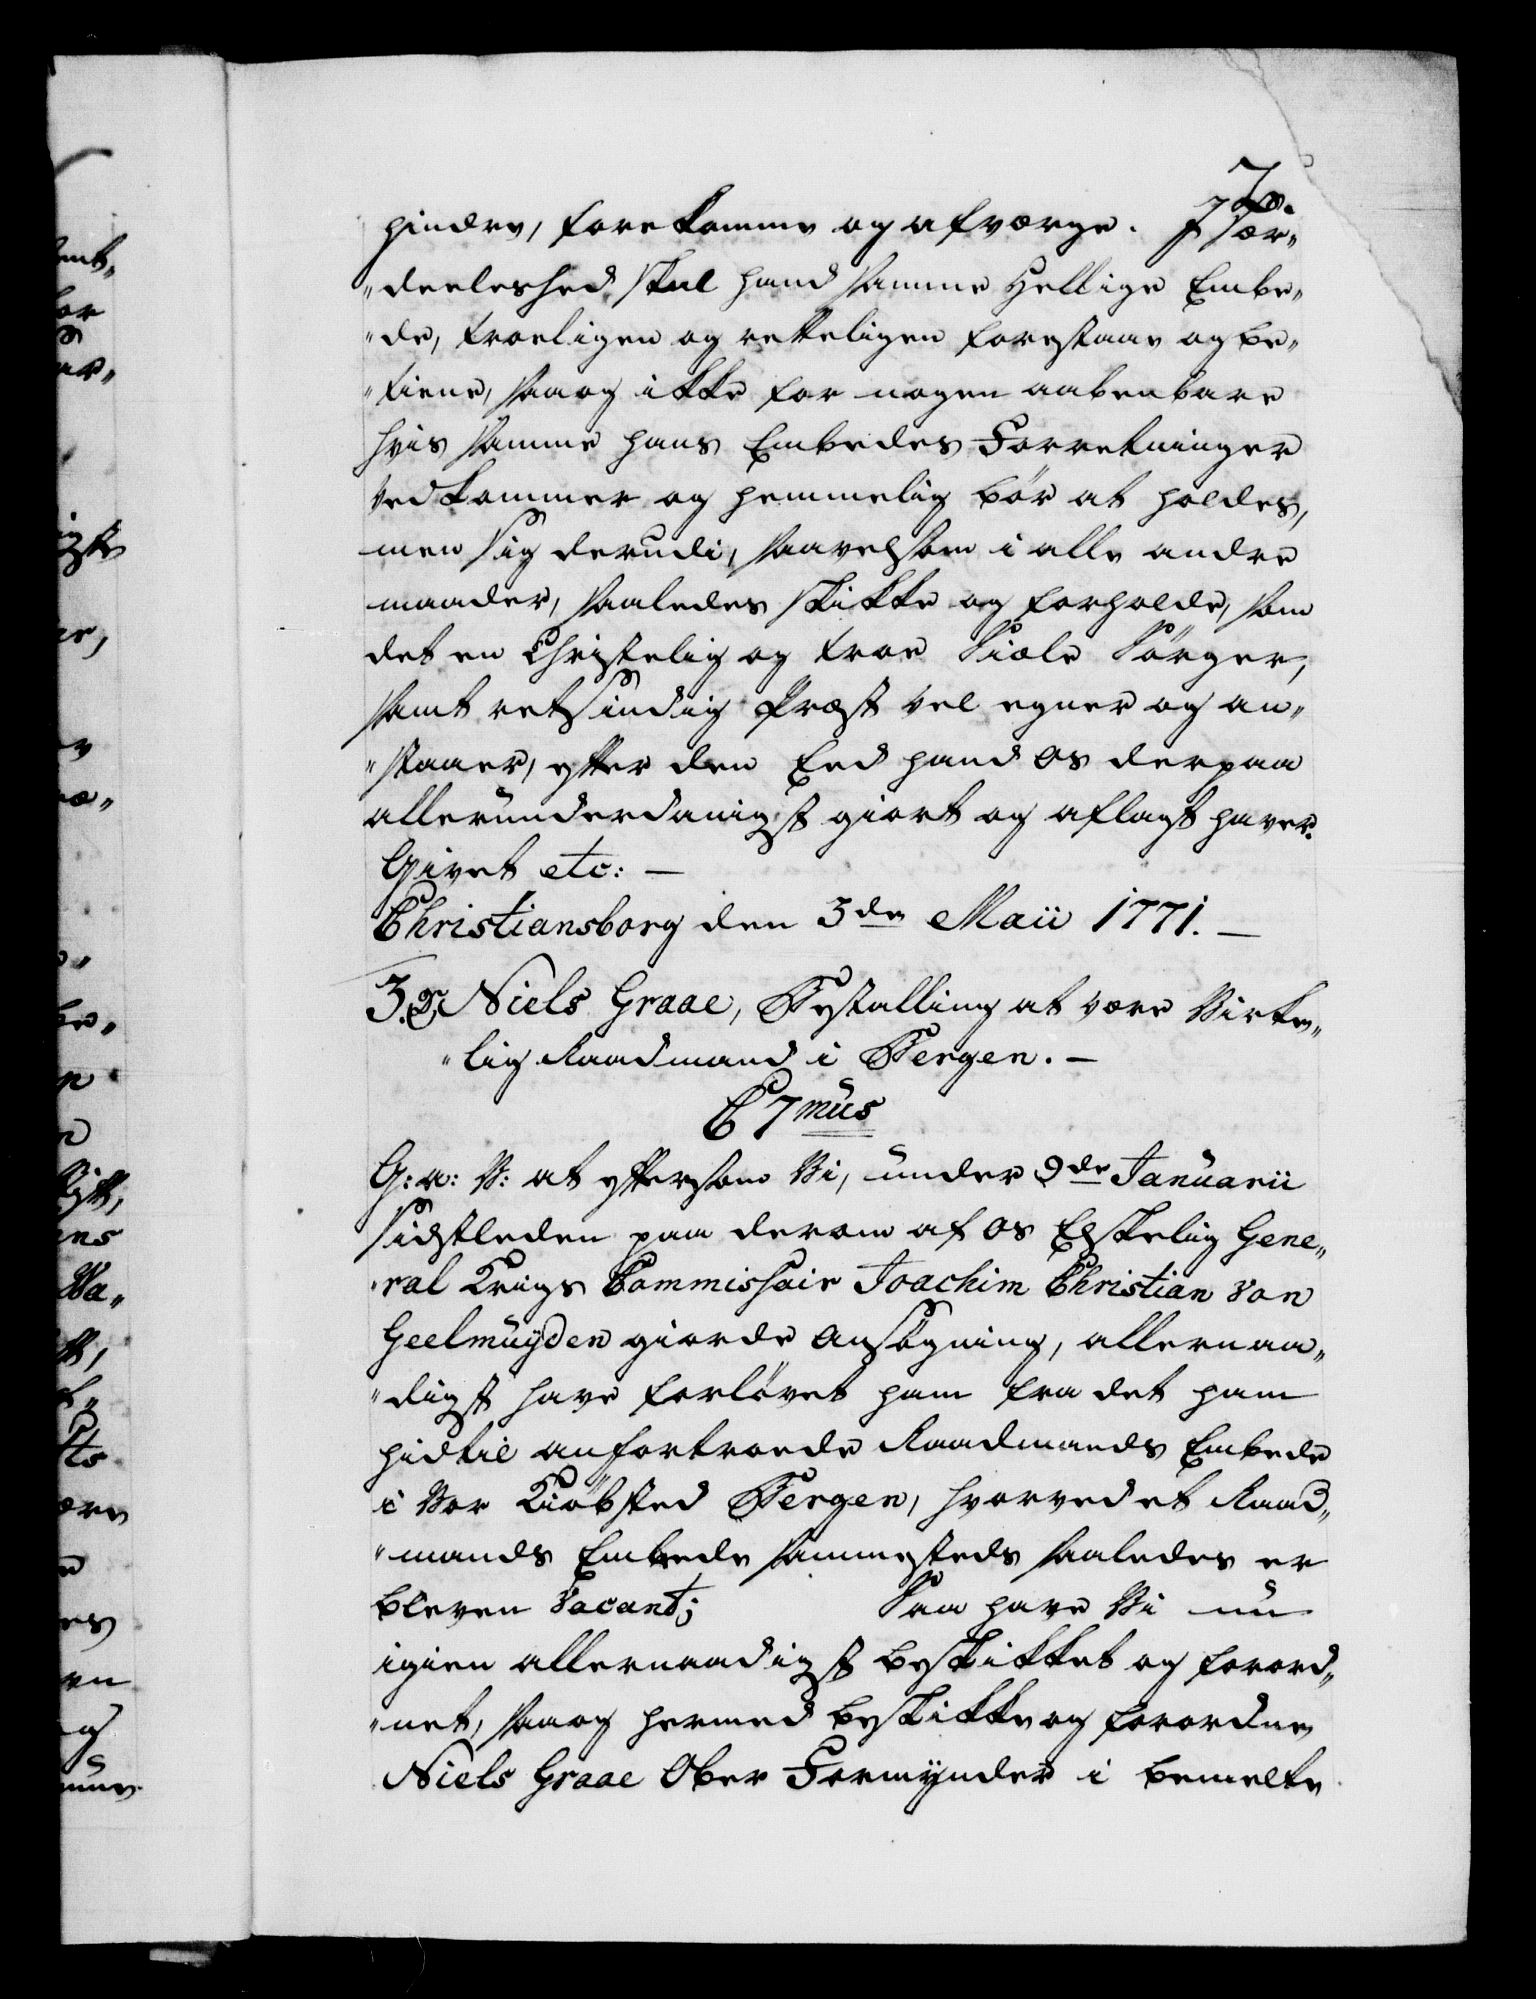 hindre, forekomme og afværge. I Sær„
„deeleshed skal hand samme Hellige Embe„
„de, troeligen og retteligen forestaae og be„
„tiene, saa og ikke for nogen aabenbare
hvis samme hans Embedes Forretninger
vedkommer og hemmelig bör at holdes,
men sig derudi, saavelsom i alle andre
maader, saaledes skikke og forholde, som
det en Christelig og troe Siæle Sörger,
samt retsindig Præst vel egner og an„
„staaer, efter den Eed hand os derpaa
allerunderdanigst giort og aflagt haver.
Givet etc: —
Christiansborg den 3de Maii 1771. —
3. Niels Graae, Bestalling at være Virke„
„lig Raadmand i Bergen. —
C 7mus
G: a: V: at eftersom Vi, under 9de Januarii
sidstleden paa derom af os Elskelig Gene„
„ral Krigs Commissair Joachim Christian von
Geelmuyden giorde Ansögning, allernaa„
„digst have forlövet ham fra det ham
hidtil anfortroede Raadmands Embede
i Vor Kiöbsted Bergen, hvorved et Raad„
„mands Embede sammesteds saaledes er
bleven Vacant; Saa have Vi nu
igien allernaadigst beskikket og forord„
„net, saa og hermed beskikke og forordne
Niels Graae Ober Formynder i bemelte